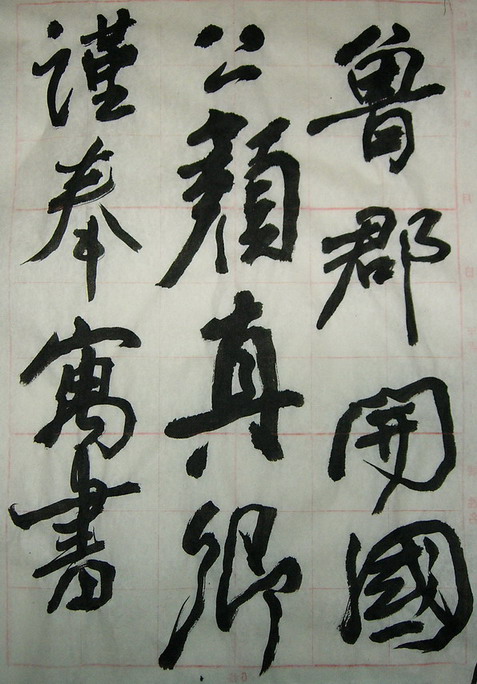 魯郡開國
公顏真卿
謹奉寓書